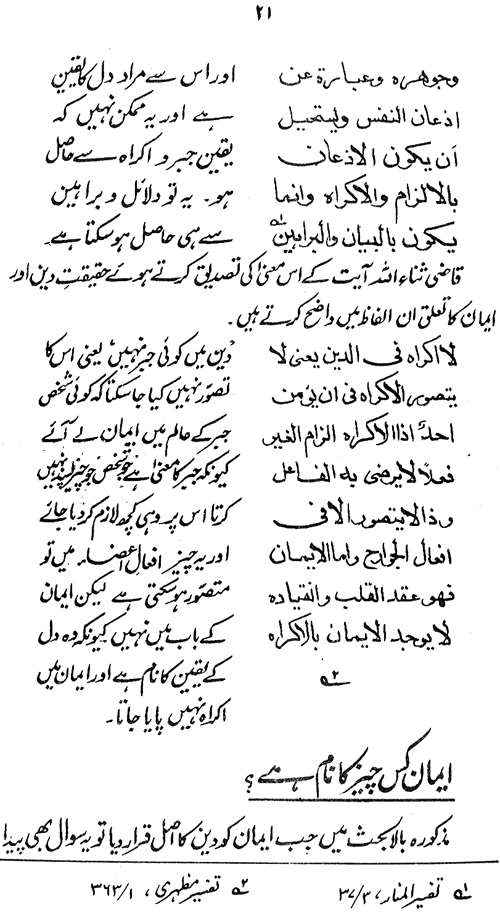 ۲۱
وجوهره وعبارة عن
اذعان النفس ويستحيل
أن يكون الاذعان
بالالزام والاكراه وانما
يكون بالبيان والبراهين ؎۱
اور اس سے مراد دل کا یقین
ہے اور یہ ممکن نہیں کہ
یقین جبر و اکراہ سے حاصل
ہو۔ یہ تو دلائل و براہین
سے ہی حاصل ہو سکتا ہے۔
قاضی ثناء اللہ آیت کے اس معنیٰ کی تصدیق کرتے ہوئے حقیقتِ دین اور
ایمان کا تعلق ان الفاظ میں واضح کرتے ہیں۔
لا اكراه فى الدين يعنى لا
يتصور الاكراه فى ان يؤمن
احدٌ اذا الاكراه الزام الغير
فعلًا لا يرضى به الفاعل
وذا لا يتصور الا فى
افعال الجوارح واما الايمان
فهو عقد القلب وانقياده
لا يوجد الايمان بالاكراه
؎۲
’دین میں کوئی جبر نہیں‘ یعنی اس کا
تصوّر نہیں کیا جا سکتا کہ کوئی شخص
جبر کے عالم میں ایمان لے آئے
کیونکہ جبر کا معنیٰ ہے جو شخص جو چیز پسند نہیں
کرتا اس پر وہی کچھ لازم کر دیا جائے
اور یہ چیز افعالِ اعضاء میں تو
متصوّر ہو سکتی ہے لیکن ایمان
کے باب میں نہیں کیونکہ وہ دل
کے یقین کا نام ہے اور ایمان میں
اکراہ نہیں پایا جاتا۔
ایمان کس چیز کا نام ہے؟
مذکورہ بالا بحث میں جب ایمان کو دین کا اصل قرار دیا تو یہ سوال بھی پیدا
؎۱ تفسیر المنار، ۳/۳۷
؎۲ تفسیر مظہری، ۱/۳۶۳